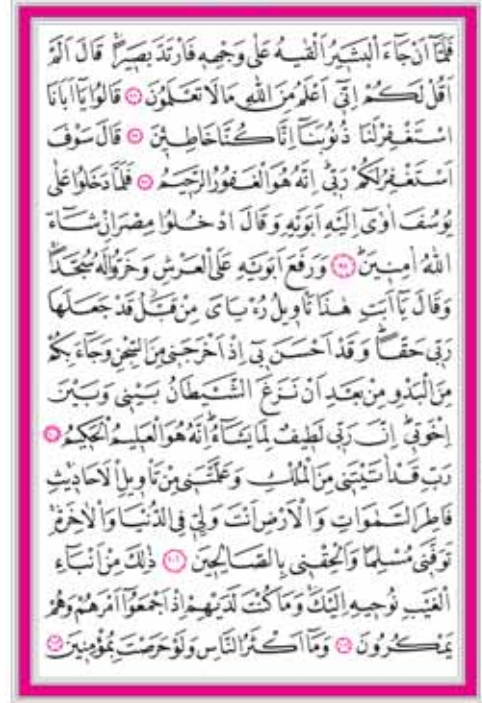 فَلَمَّٓا اَنْ جَٓاءَ الْبَش۪يرُ اَلْقٰيهُ عَلٰى وَجْهِه۪ فَارْتَدَّ بَص۪يراًۚ قَالَ اَلَمْ
اَقُلْ لَكُمْ اِنّ۪ٓي اَعْلَمُ مِنَ اللّٰهِ مَا لَا تَعْلَمُونَ ﴿٩٦﴾ قَالُوا يَٓا اَبَانَا
اسْتَغْفِرْ لَنَا ذُنُوبَنَٓا اِنَّا كُنَّا خَاطِـ۪ٔينَ ﴿٩٧﴾ قَالَ سَوْفَ
اَسْتَغْفِرُ لَكُمْ رَبّ۪يۜ اِنَّهُ هُوَ الْغَفُورُ الرَّح۪يمُ ﴿٩٨﴾ فَلَمَّا دَخَلُوا عَلٰى
يُوسُفَ اٰوٰٓى اِلَيْهِ اَبَوَيْهِ وَقَالَ ادْخُلُوا مِصْرَ اِنْ شَٓاءَ
اللّٰهُ اٰمِن۪ينَۜ ﴿٩٩﴾ وَرَفَعَ اَبَوَيْهِ عَلَى الْعَرْشِ وَخَرُّوا لَهُ سُجَّداًۚ
وَقَالَ يَٓا اَبَتِ هٰذَا تَأْو۪يلُ رُءْيَايَ مِنْ قَبْلُۘ قَدْ جَعَلَهَا
رَبّ۪ي حَقاًّۜ وَقَدْ اَحْسَنَ ب۪ٓي اِذْ اَخْرَجَن۪ي مِنَ السِّجْنِ وَجَٓاءَ بِكُمْ
مِنَ الْبَدْوِ مِنْ بَعْدِ اَنْ نَزَغَ الشَّيْطَانُ بَيْن۪ي وَبَيْنَ
اِخْوَت۪يۜ اِنَّ رَبّ۪ي لَط۪يفٌ لِمَا يَشَٓاءُۜ اِنَّهُ هُوَ الْعَل۪يمُ الْحَك۪يمُ ﴿١٠٠﴾
رَبِّ قَدْ اٰتَيْتَن۪ي مِنَ الْمُلْكِ وَعَلَّمْتَن۪ي مِنْ تَأْو۪يلِ الْاَحَاد۪يثِۚ
فَاطِرَ السَّمٰوَاتِ وَالْاَرْضِ اَنْتَ وَلِيّ۪ فِي الدُّنْيَا وَالْاٰخِرَةِۚ
تَوَفَّن۪ي مُسْلِماً وَاَلْحِقْن۪ي بِالصَّالِح۪ينَ ﴿١٠١﴾ ذٰلِكَ مِنْ اَنْبَٓاءِ
الْغَيْبِ نُوح۪يهِ اِلَيْكَۚ وَمَا كُنْتَ لَدَيْهِمْ اِذْ اَجْمَعُٓوا اَمْرَهُمْ وَهُمْ
يَمْكُرُونَ ﴿١٠٢﴾ وَمَٓا اَكْثَرُ النَّاسِ وَلَوْ حَرَصْتَ بِمُؤْمِن۪ينَ ﴿١٠٣﴾